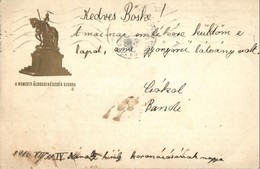 Kedves Böske!
A mai nap emlékére küldöm e
lapot, ami gyönyörű látvány volt.
A NEMZETI ÁLDOZATKÉSZSÉG SZOBRA
Csókol
Bandi
IV Károly király koronázásának napja